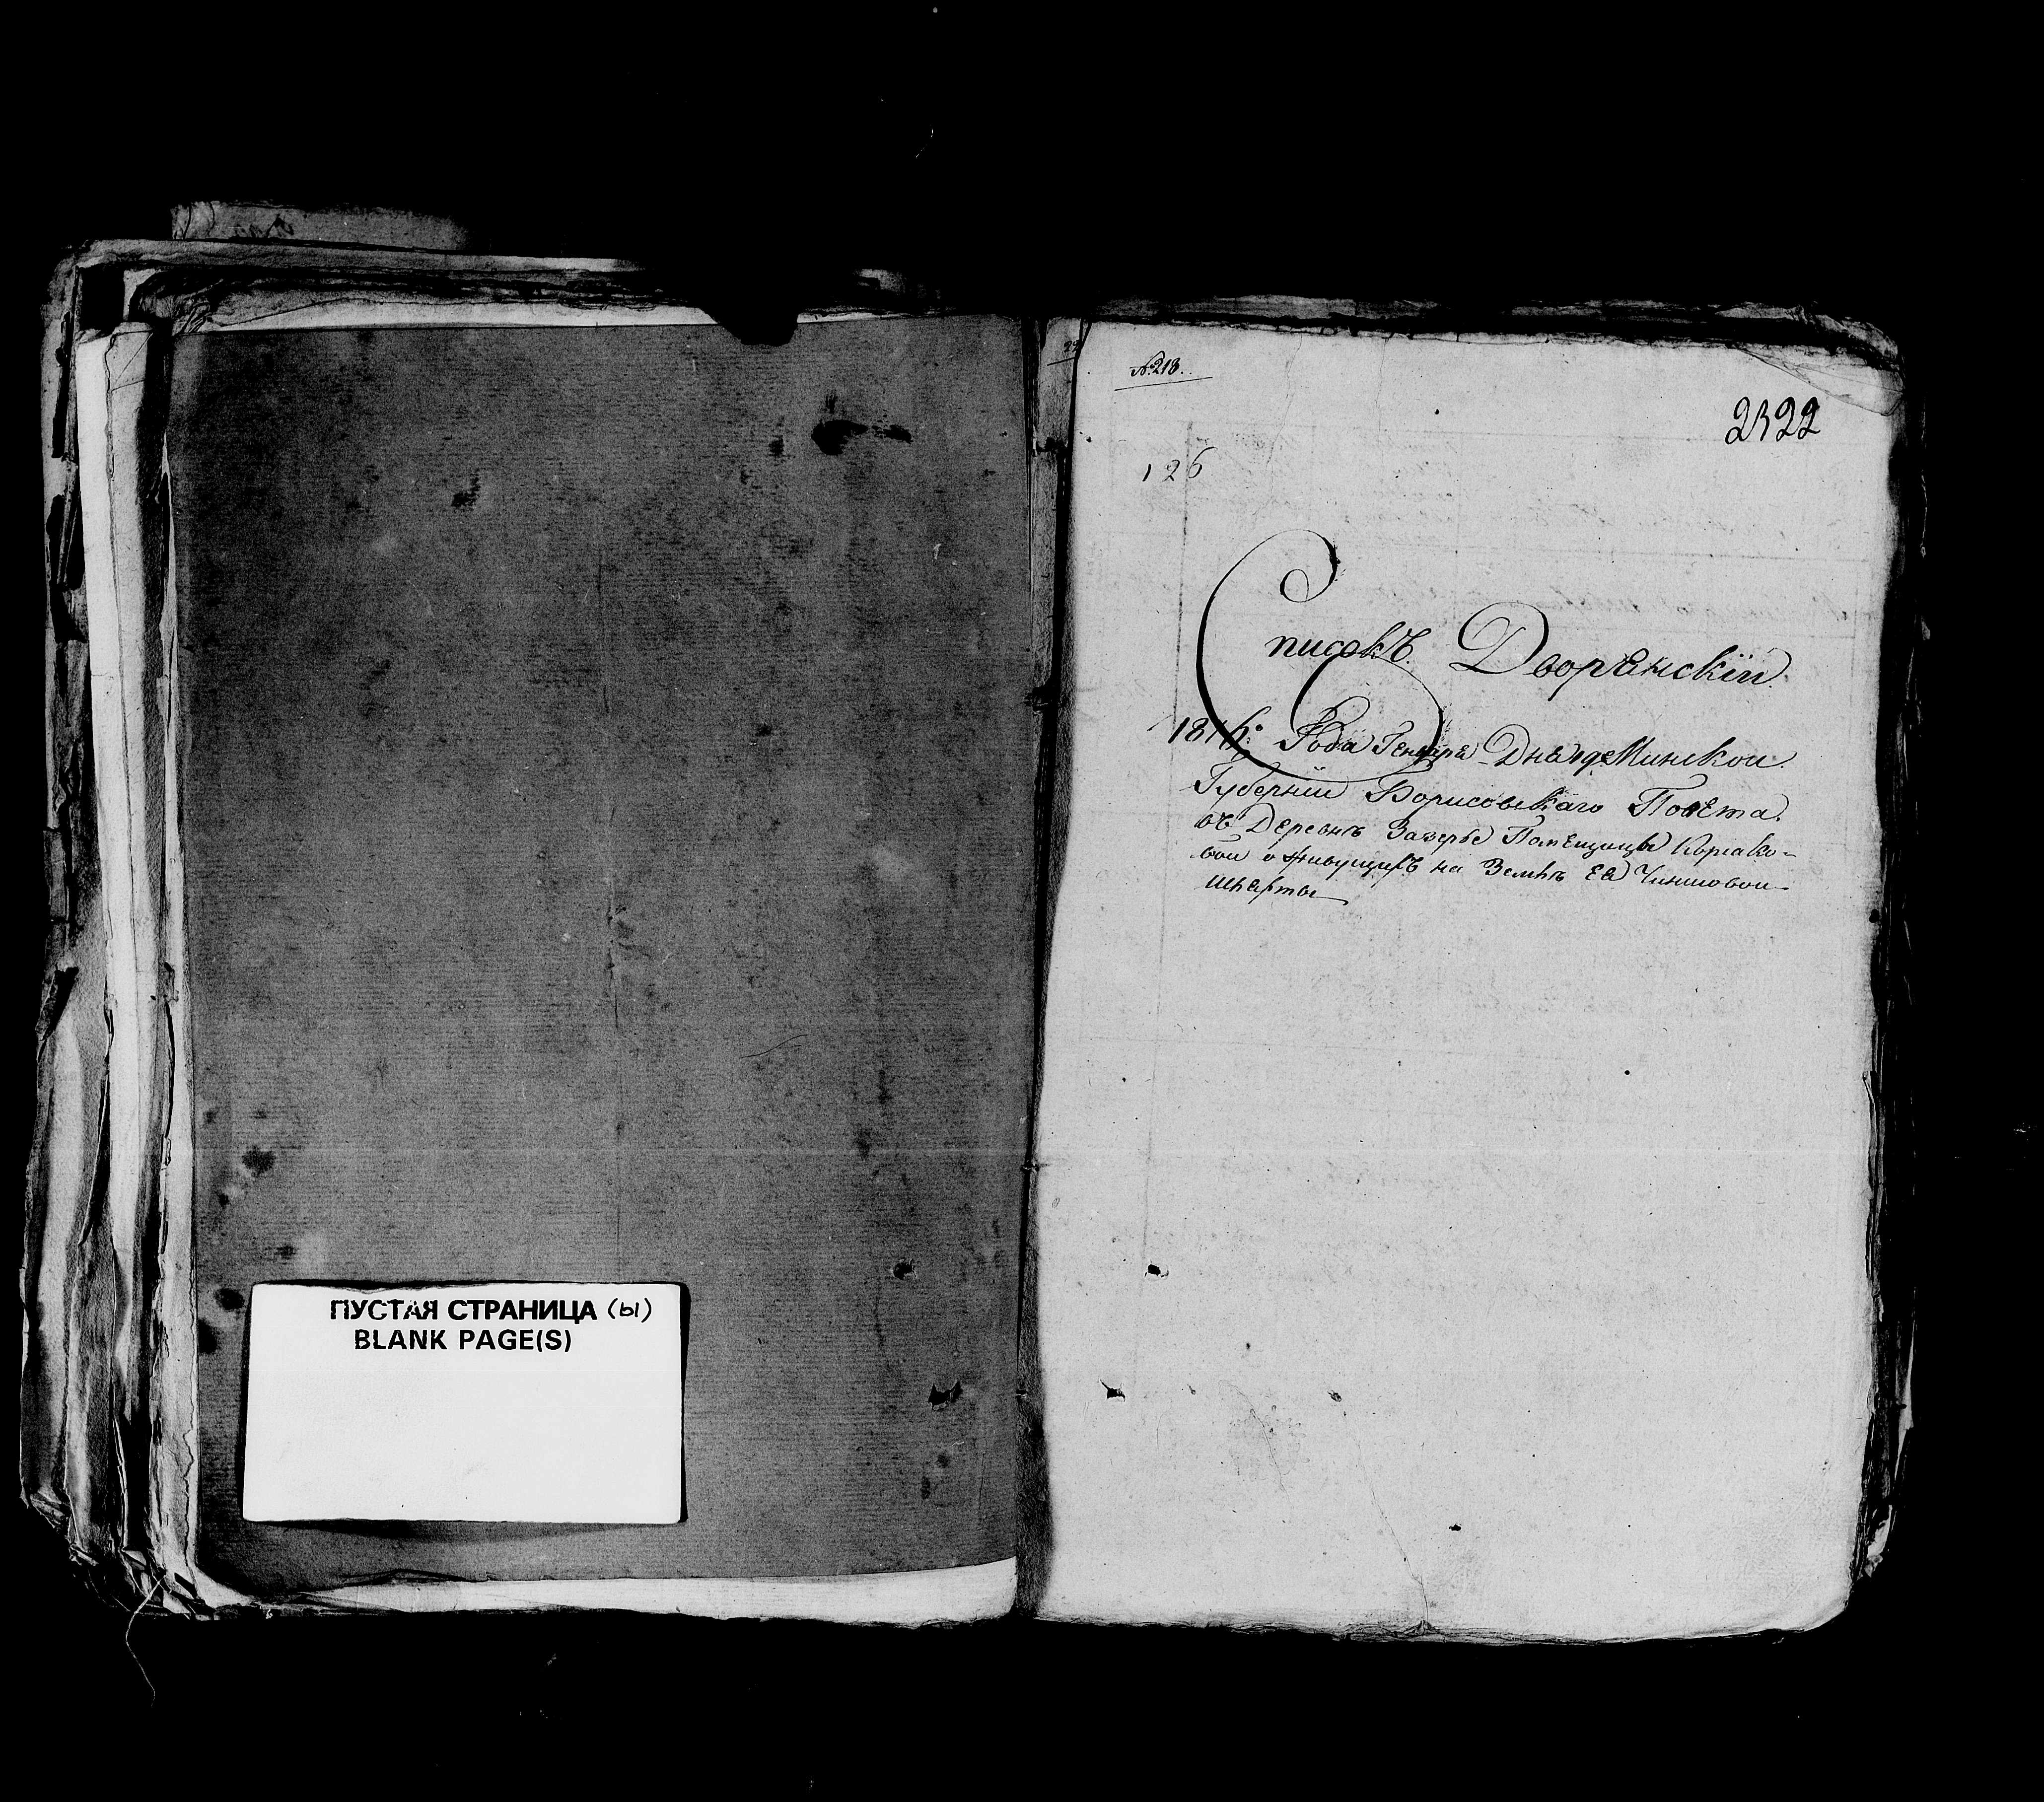 ПУСТАЯ СТРАНИЦА (ы)
BLANK PAGE(S)
№ 213.
2322
126
Списокъ Дворянскїи
181 Года Генваря Дня Минской
Губернїи Борисовскаго Повета
въ Деревнѣ Зазерье Помещицы Корсако-
вои о живущихъ на Землѣ Ея Чиншовои
шляхты